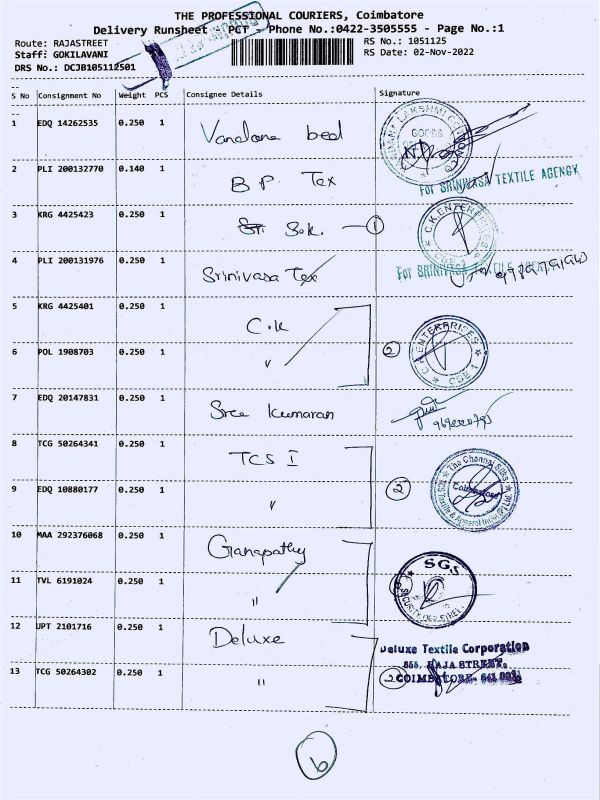 THE PROFESSIONAL COURIERS, Coimbatore
Delivery Runsheet - PCT - Phone No.:0422-3505555 - Page No.:1
Route: RAJASTREET RS No.: 1051125
Staff: GOKILAVANI RS Date: 02-Nov-2022
DRS No.: DCJB105112501
S No Consignment No Weight PCS Consignee Details Signature
1 EDQ 14262535 0.250 1 Vandana bed GOODS
2 PLI 200132770 0.140 1 B.P. Tex
For SRINIVASA TEXTILE AGENCY
3 KRG 4425423 0.250 1 Sri Sok. 1 C.K ENTERPRISES CBE 1
4 PLI 200131976 0.250 1 Srinivasa Tex For SRINIVASA
5 KRG 4425401 0.250 1 C.K
6 POL 1908703 0.250 1 " 2 C.K ENTERPRISES CBE 1
7 EDQ 20147831 0.250 1 Sree Kumaran
8 TCG 50264341 0.250 1 TCS I
9 EDQ 10880177 0.250 1 " 2 The Chennai Silks Coimbatore
10 MAA 292376068 0.250 1 Ganapathy
11 TVL 6191024 0.250 1 " SGS SECURITY
12 UPT 2101716 0.250 1 Deluxe
Deluxe Textile Corporation
856, RAJA STREET,
13 TCG 50264302 0.250 1 " 2 COIMBATORE- 641 001.
6